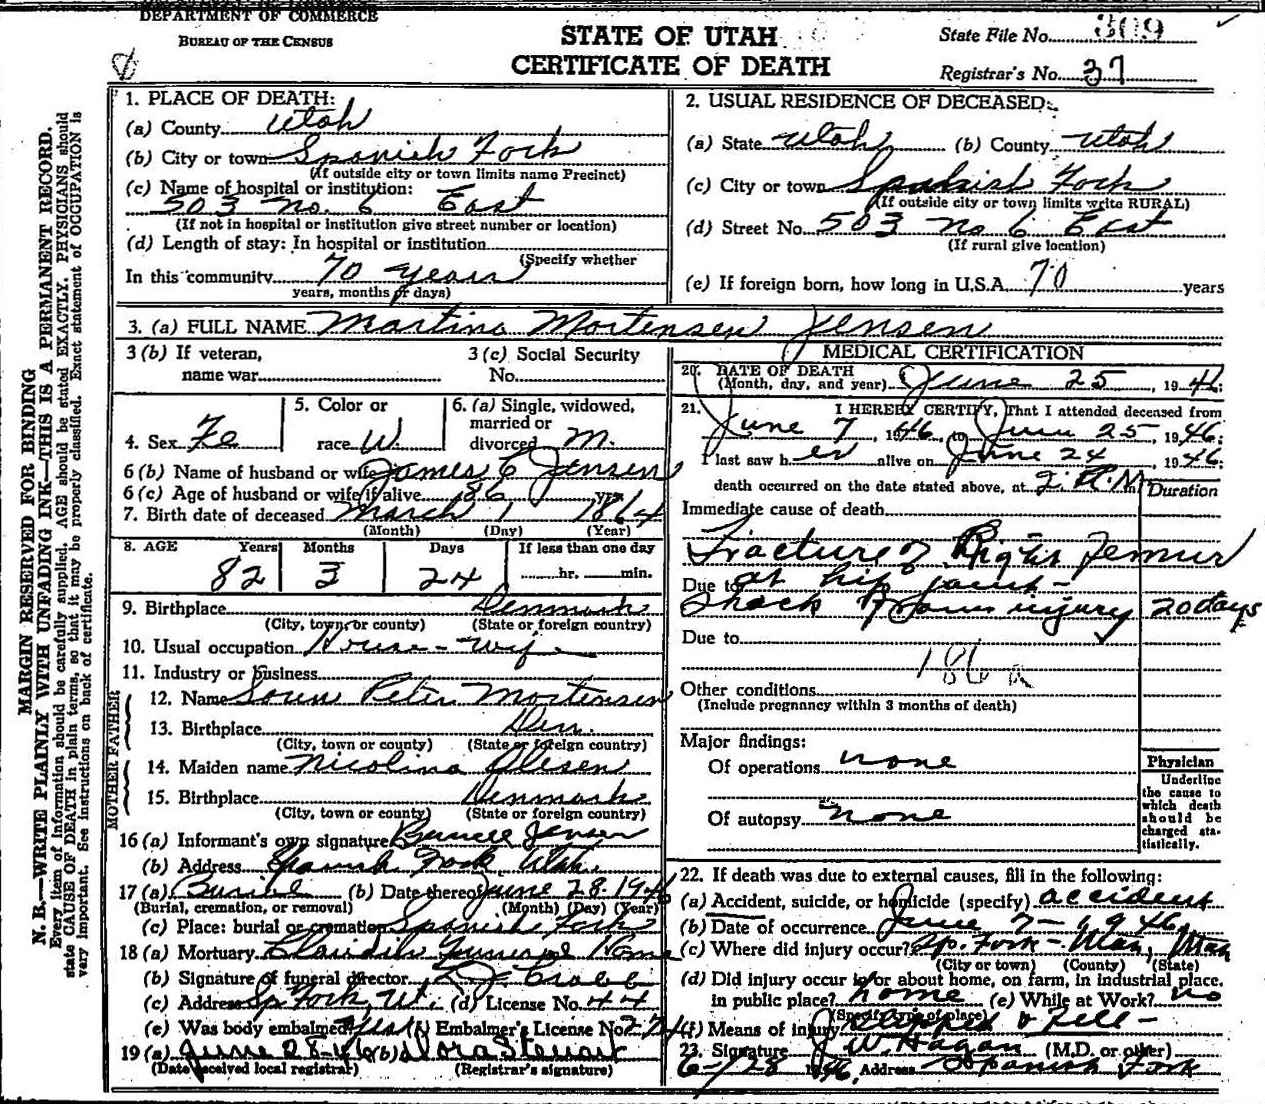 DEPARTMENT OF COMMERCE
BUREAU OF THE CENSUS
STATE OF UTAH
CERTIFICATE OF DEATH
State File No. 309
Registrar's No. 37
MARGIN RESERVED FOR BINDING
N. B.—WRITE PLAINLY WITH UNFADING INK—THIS IS A PERMANENT RECORD.
Every item of information should be carefully supplied. AGE should be stated EXACTLY. PHYSICIANS should
state CAUSE OF DEATH in plain terms, so that it may be properly classified. Exact statement of OCCUPATION is
very important. See instructions on back of certificate.
1. PLACE OF DEATH:
(a) County Utah
(b) City or town Spanish Fork
(If outside city or town limits name Precinct)
(c) Name of hospital or institution:
503 No. 6 East
(If not in hospital or institution give street number or location)
(d) Length of stay: In hospital or institution
(Specify whether
In this community 70 years
years, months or days)
2. USUAL RESIDENCE OF DECEASED:
(a) State Utah (b) County Utah
(c) City or town Spanish Fork
(If outside city or town limits write RURAL)
(d) Street No. 503 No 6 East
(If rural give location)
(e) If foreign born, how long in U.S.A. 70 years
3. (a) FULL NAME Martina Mortensen Jensen
3 (b) If veteran,
name war
3 (c) Social Security
No.
4. Sex Fe
5. Color or
race W.
6. (a) Single, widowed,
married or
divorced M.
6 (b) Name of husband or wife James E Jensen
6 (c) Age of husband or wife if alive 86 yrs.
7. Birth date of deceased March 1 1864
(Month) (Day) (Year)
8. AGE Years Months Days If less than one day
82 3 24 hr. min.
9. Birthplace Denmark
(City, town or county) (State or foreign country)
10. Usual occupation House-wife
11. Industry or business
FATHER
12. Name Soren Peter Mortensen
13. Birthplace Den.
(City, town or county) (State or foreign country)
MOTHER
14. Maiden name Nicolina Olesen
15. Birthplace Denmark
(City, town or county) (State or foreign country)
16 (a) Informant's own signature Jensen
(b) Address Spanish Fork, Utah.
17 (a) Burial (b) Date thereof June 28-1946
(Burial, cremation, or removal) (Month) (Day) (Year)
(c) Place: burial or cremation Spanish Fork
18 (a) Mortuary Claudin Funeral Home
(b) Signature of funeral director
(c) Address Sp. Fork, Ut. (d) License No. 44
(e) Was body embalmed? (f) Embalmer's License No.
19 (a) June 28-46 (b) Dora Stewart
(Date received local registrar) (Registrar's signature)
MEDICAL CERTIFICATION
20. DATE OF DEATH
(Month, day, and year) June 25, 1946.
21. I HEREBY CERTIFY, That I attended deceased from
June 7, 1946, to June 25, 1946.
I last saw her alive on June 24 1946
death occurred on the date stated above, at 2. A.M.
Duration
Immediate cause of death
Fracture of Right Femur
Due to at hip joint-
Shock from injury 20 days
Due to
186a
Other conditions
(Include pregnancy within 3 months of death)
Major findings:
Of operations none
Of autopsy none
Physician
Underline
the cause to
which death
should be
charged sta-
tistically.
22. If death was due to external causes, fill in the following:
(a) Accident, suicide, or homicide (specify) accident
(b) Date of occurrence June 7-1946
(c) Where did injury occur? Sp. Fork - Utah, Utah
(City or town) (County) (State)
(d) Did injury occur in or about home, on farm, in industrial place,
in public place? home (e) While at Work? no
(Specify type of place)
(f) Means of injury slipped & fell-
23. Signature J W Hagan (M.D. or other)
6-28 1946, Address Spanish Fork